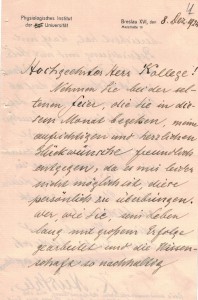 Physiologisches Institut
der
Universität
Breslau XVI, den 8. Dez. 193
Hochgeehrter Herr Kollege!
Nehmen Sie bei der sel-
tenen Feier, die Sie in die-
sem Monat begehen, meine
aufrichtigen und herzlichen
Glückwünsche freundlich
entgegen, da es mir leider
nicht möglich ist, diese
persönlich zu überbringen.
Wer, wie Sie, ein Leben
lang mit großem Erfolge
gearbeitet und die Wissen-
schaft so nachhaltig